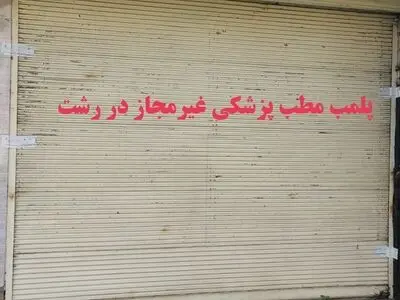 پلمب مطب پزشکی غیرمجاز در رشت